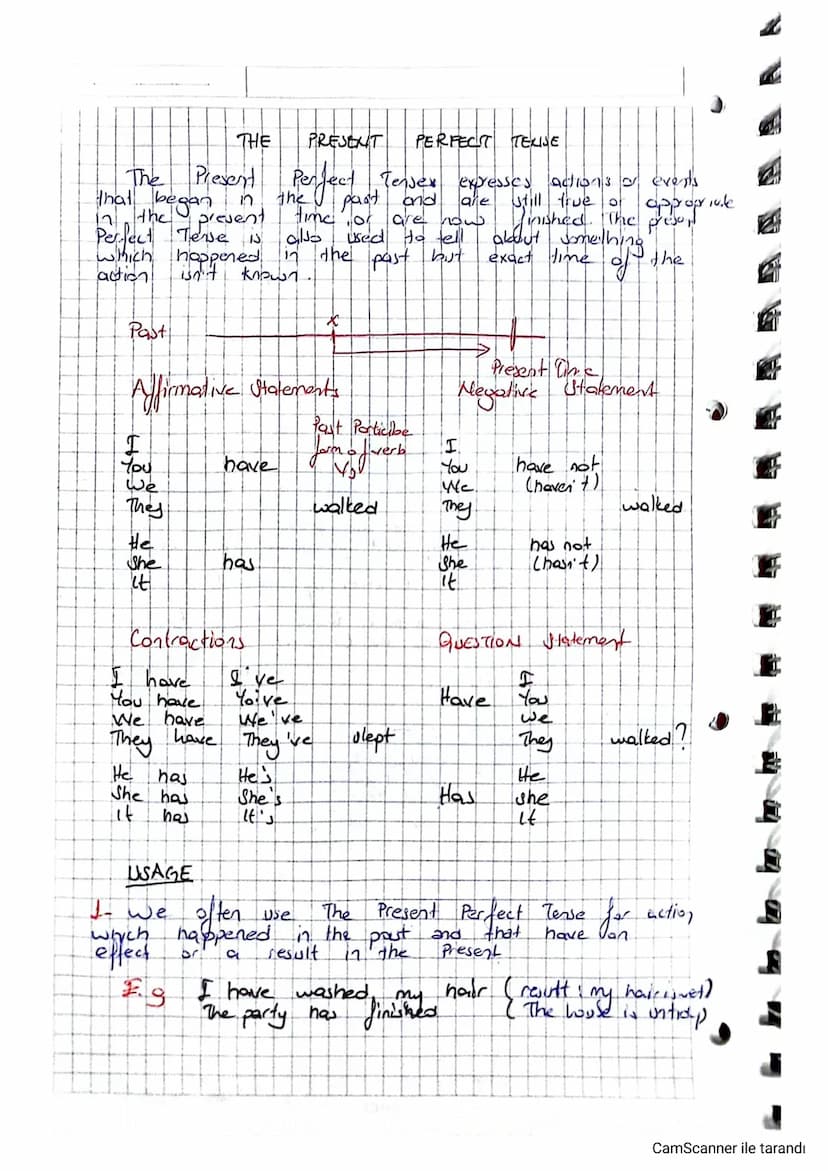 THE PRESENT PERFECT TENSE
The Present Perfect Tenses expresses actions or events
that began in the past and are still true or appropriate
in the present time or are now finished. The present
Perfect Tense is also used to tell about something
which happened in the past but exact time of the
action isn't known.
x
Past
Present Time
Affirmative Statements Negative Statement
Past Participe
form of verb
V3
I I
You have You have not
We We (haven't)
They walked They walked
He He has not
She has She (hasn't)
It It
Contractions QUESTION Statement
I have I've I
You have Yo've Have You
We have We've we
They have They've slept They walked?
He has He's He
She has She's Has she
It has It's It
USAGE
1- We often use The Present Perfect Tense for action,
which happened in the past and that have an
effect or a result in the Present
E.g I have washed my hair (result : my hair is wet)
The party has finished ( The house is untidy)
CamScanner ile tarandı